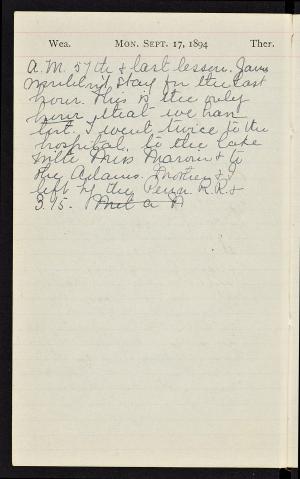 Wea. MON. SEPT. 17, 1894 Ther.
A.M. 57th & last lesson. James
wouldn't stay for the last
hour. This is the only
hour that we han
lost. I went twice to the
hospital, to the lake
with Miss & to
the Adams. Mother & I
left by the Penn R.R. &
3.15. Met a